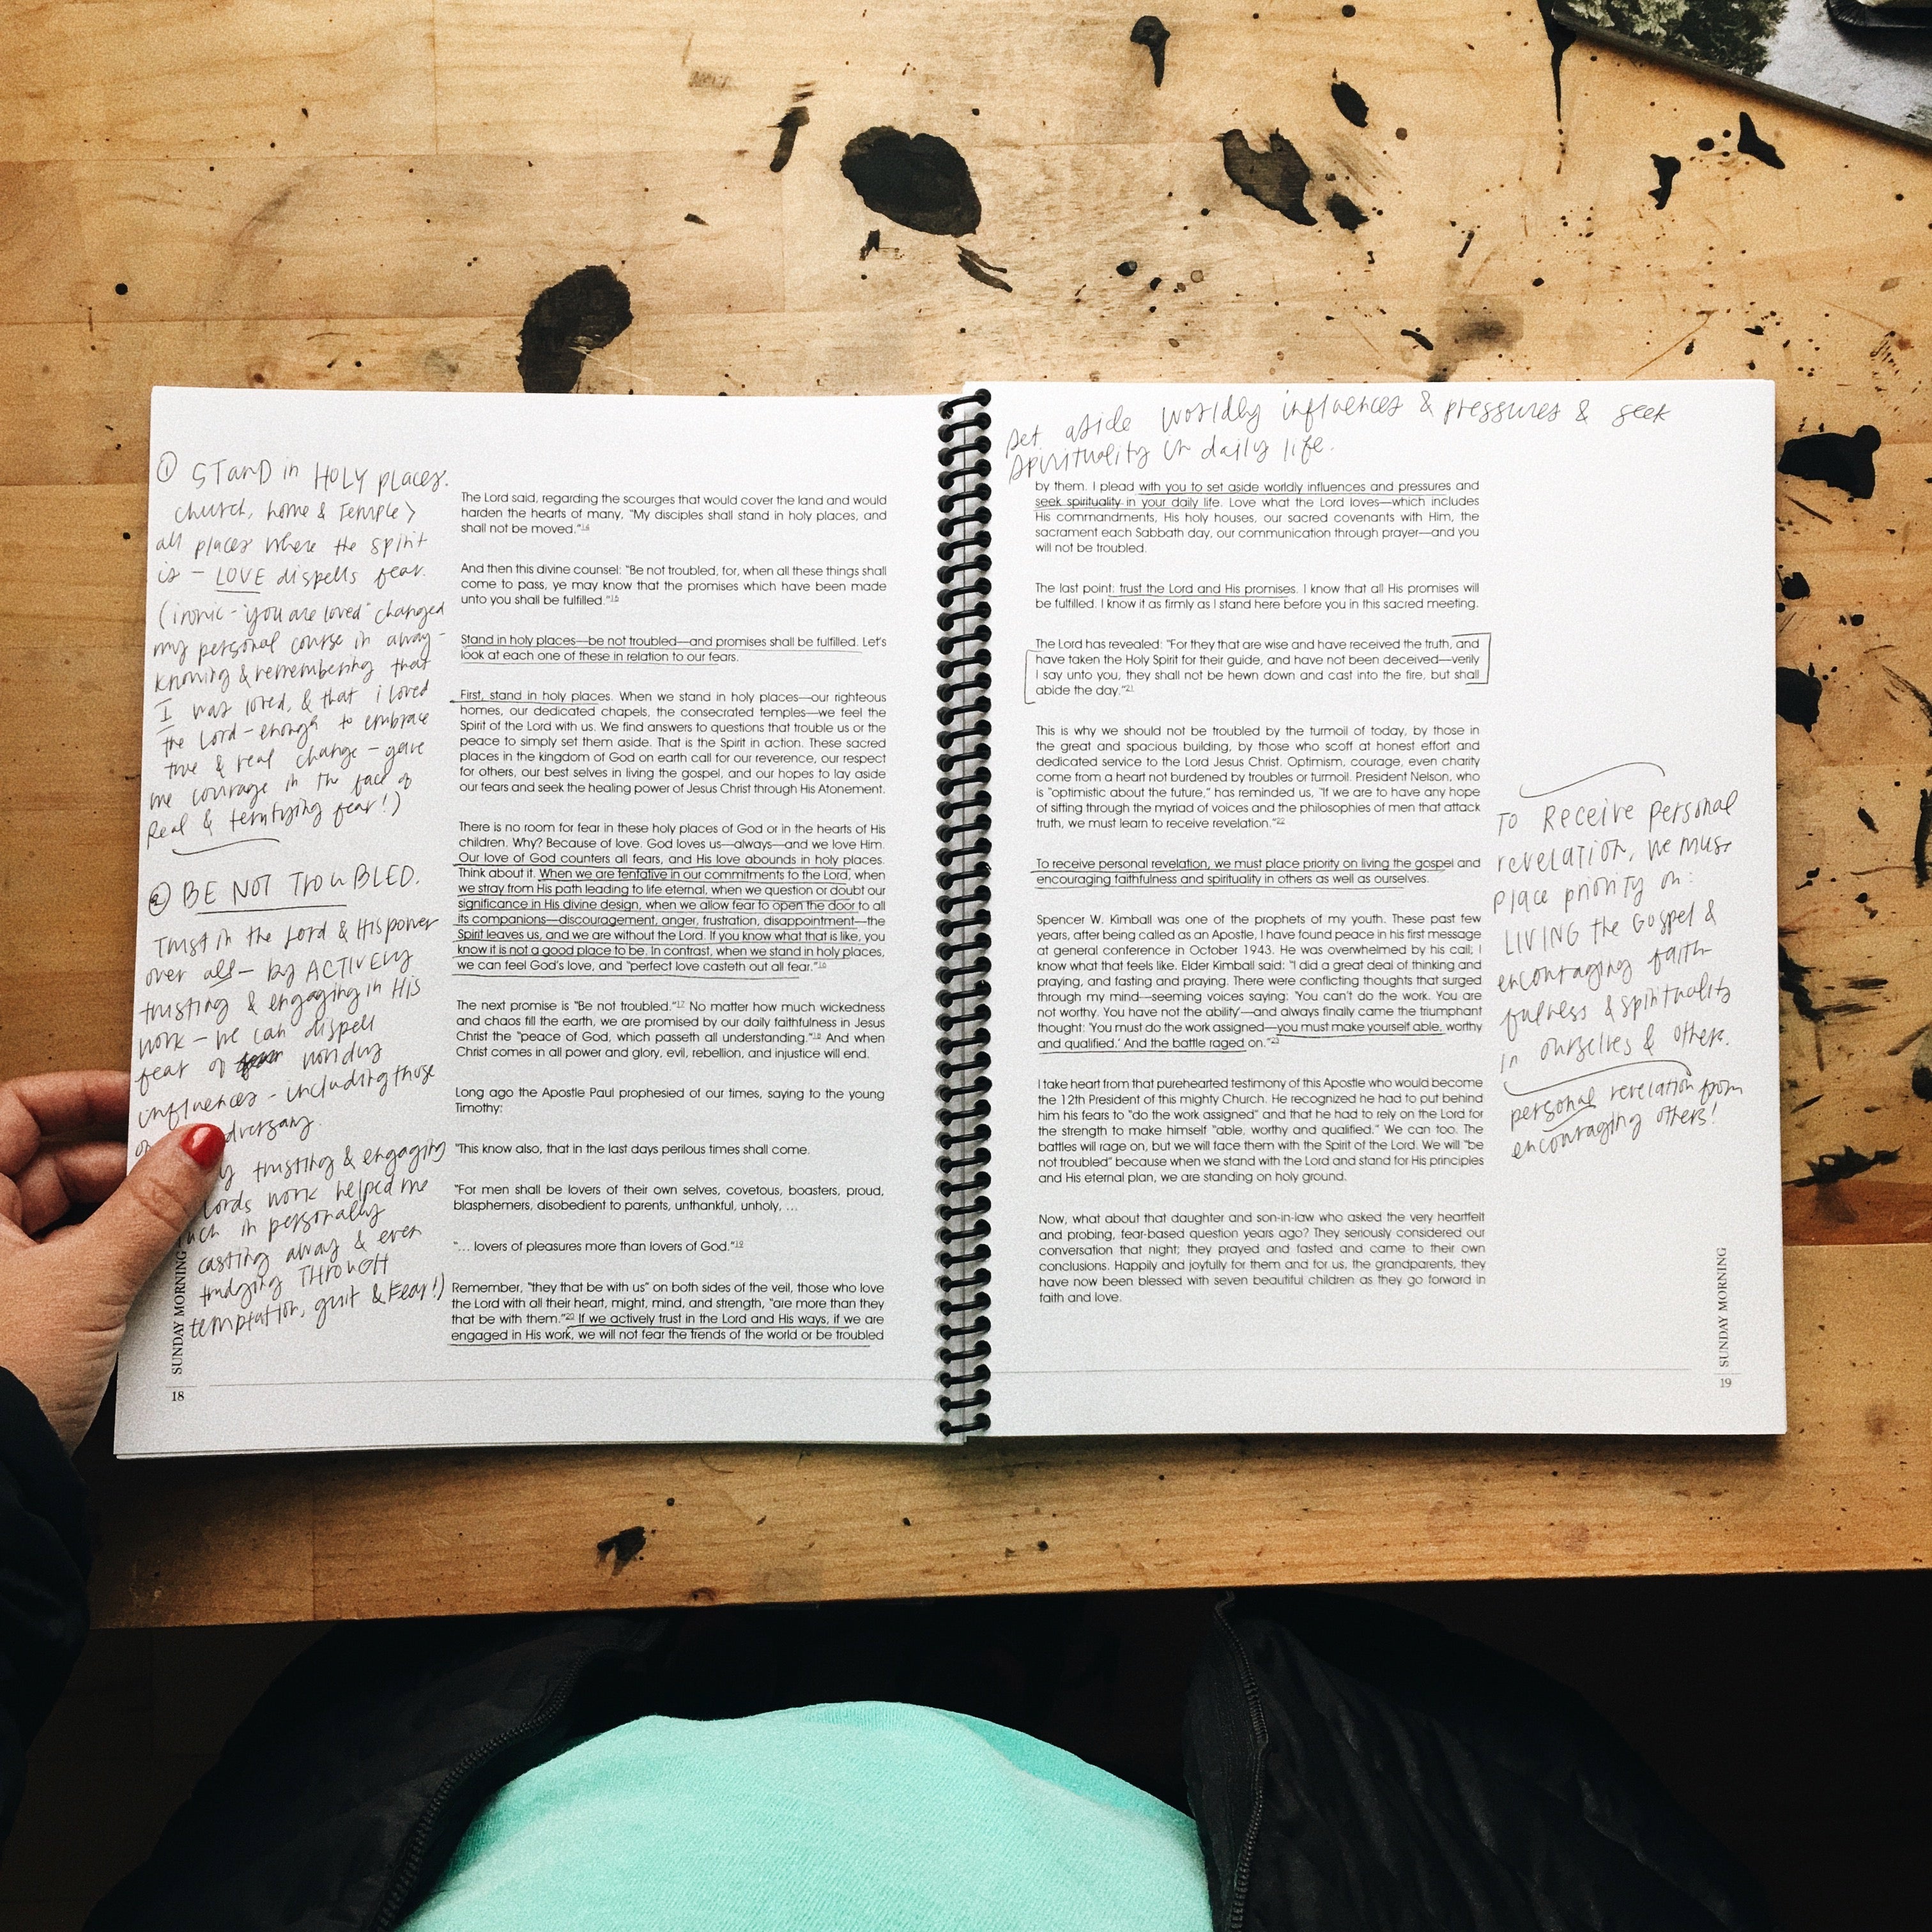 ① STAND in HOLY places.
church, home & Temple >
all places where the spirit
is - LOVE dispells fear.
(ironic - "you are loved" changed
my personal course in away -
knowing & remembering that
I was loved, & that i loved
the Lord - enough to embrace
true & real change - gave
me courage in the face of
Real & terrifying fear!)
② BE NOT TROUBLED.
Trust in the Lord & His power
over all - by ACTIVELY
trusting & engaging in His
work - we can dispell
fear of worldly
influences - including those
trusting & engaging
Lords work helped me
in personally
casting away & even
trudging THROUGH
temptation, guilt & Fear!)
The Lord said, regarding the scourges that would cover the land and would
harden the hearts of many, "My disciples shall stand in holy places, and
shall not be moved."14
And then this divine counsel: "Be not troubled, for, when all these things shall
come to pass, ye may know that the promises which have been made
unto you shall be fulfilled."15
Stand in holy places—be not troubled—and promises shall be fulfilled. Let's
look at each one of these in relation to our fears.
First, stand in holy places. When we stand in holy places—our righteous
homes, our dedicated chapels, the consecrated temples—we feel the
Spirit of the Lord with us. We find answers to questions that trouble us or the
peace to simply set them aside. That is the Spirit in action. These sacred
places in the kingdom of God on earth call for our reverence, our respect
for others, our best selves in living the gospel, and our hopes to lay aside
our fears and seek the healing power of Jesus Christ through His Atonement.
There is no room for fear in these holy places of God or in the hearts of His
children. Why? Because of love. God loves us—always—and we love Him.
Our love of God counters all fears, and His love abounds in holy places.
Think about it. When we are tentative in our commitments to the Lord, when
we stray from His path leading to life eternal, when we question or doubt our
significance in His divine design, when we allow fear to open the door to all
its companions—discouragement, anger, frustration, disappointment—the
Spirit leaves us, and we are without the Lord. If you know what that is like, you
know it is not a good place to be. In contrast, when we stand in holy places,
we can feel God's love, and "perfect love casteth out all fear."16
The next promise is "Be not troubled."17 No matter how much wickedness
and chaos fill the earth, we are promised by our daily faithfulness in Jesus
Christ the "peace of God, which passeth all understanding."18 And when
Christ comes in all power and glory, evil, rebellion, and injustice will end.
Long ago the Apostle Paul prophesied of our times, saying to the young
Timothy:
"This know also, that in the last days perilous times shall come.
"For men shall be lovers of their own selves, covetous, boasters, proud,
blasphemers, disobedient to parents, unthankful, unholy, …
"… lovers of pleasures more than lovers of God."19
Remember, "they that be with us" on both sides of the veil, those who love
the Lord with all their heart, might, mind, and strength, "are more than they
that be with them."20 If we actively trust in the Lord and His ways, if we are
engaged in His work, we will not fear the trends of the world or be troubled
SUNDAY MORNING
18
set aside worldly influences & pressures & seek
spirituality in daily life.
by them. I plead with you to set aside worldly influences and pressures and
seek spirituality in your daily life. Love what the Lord loves—which includes
His commandments, His holy houses, our sacred covenants with Him, the
sacrament each Sabbath day, our communication through prayer—and you
will not be troubled.
The last point: trust the Lord and His promises. I know that all His promises will
be fulfilled. I know it as firmly as I stand here before you in this sacred meeting.
The Lord has revealed: "For they that are wise and have received the truth, and
have taken the Holy Spirit for their guide, and have not been deceived—verily
I say unto you, they shall not be hewn down and cast into the fire, but shall
abide the day."21
This is why we should not be troubled by the turmoil of today, by those in
the great and spacious building, by those who scoff at honest effort and
dedicated service to the Lord Jesus Christ. Optimism, courage, even charity
come from a heart not burdened by troubles or turmoil. President Nelson, who
is "optimistic about the future," has reminded us, "If we are to have any hope
of sifting through the myriad of voices and the philosophies of men that attack
truth, we must learn to receive revelation."22
To receive personal revelation, we must place priority on living the gospel and
encouraging faithfulness and spirituality in others as well as ourselves.
Spencer W. Kimball was one of the prophets of my youth. These past few
years, after being called as an Apostle, I have found peace in his first message
at general conference in October 1943. He was overwhelmed by his call; I
know what that feels like. Elder Kimball said: "I did a great deal of thinking and
praying, and fasting and praying. There were conflicting thoughts that surged
through my mind—seeming voices saying: 'You can't do the work. You are
not worthy. You have not the ability'—and always finally came the triumphant
thought: 'You must do the work assigned—you must make yourself able, worthy
and qualified.' And the battle raged on."23
I take heart from that purehearted testimony of this Apostle who would become
the 12th President of this mighty Church. He recognized he had to put behind
him his fears to "do the work assigned" and that he had to rely on the Lord for
the strength to make himself "able, worthy and qualified." We can too. The
battles will rage on, but we will face them with the Spirit of the Lord. We will "be
not troubled" because when we stand with the Lord and stand for His principles
and His eternal plan, we are standing on holy ground.
Now, what about that daughter and son-in-law who asked the very heartfelt
and probing, fear-based question years ago? They seriously considered our
conversation that night; they prayed and fasted and came to their own
conclusions. Happily and joyfully for them and for us, the grandparents, they
have now been blessed with seven beautiful children as they go forward in
faith and love.
To Receive personal
revelation, we must
place priority on:
LIVING the Gospel &
encouraging faith-
fulness & spirituality
in ourselves & others.
personal revelation from
encouraging others!
SUNDAY MORNING
19